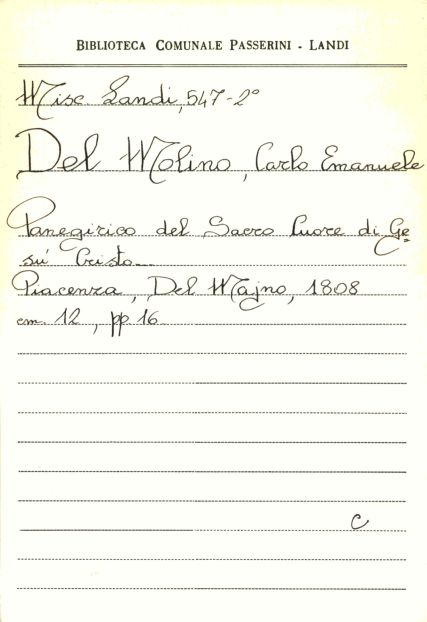 BIBLIOTECA COMUNALE PASSERINI - LANDI
Misc. Landi, 547-2°
Del Molino, Carlo Emanuele
Panegirico del Sacro Cuore di Ge=
sú Cristo
Piacenza, Del Majno, 1808
cm. 12, pp 16
C